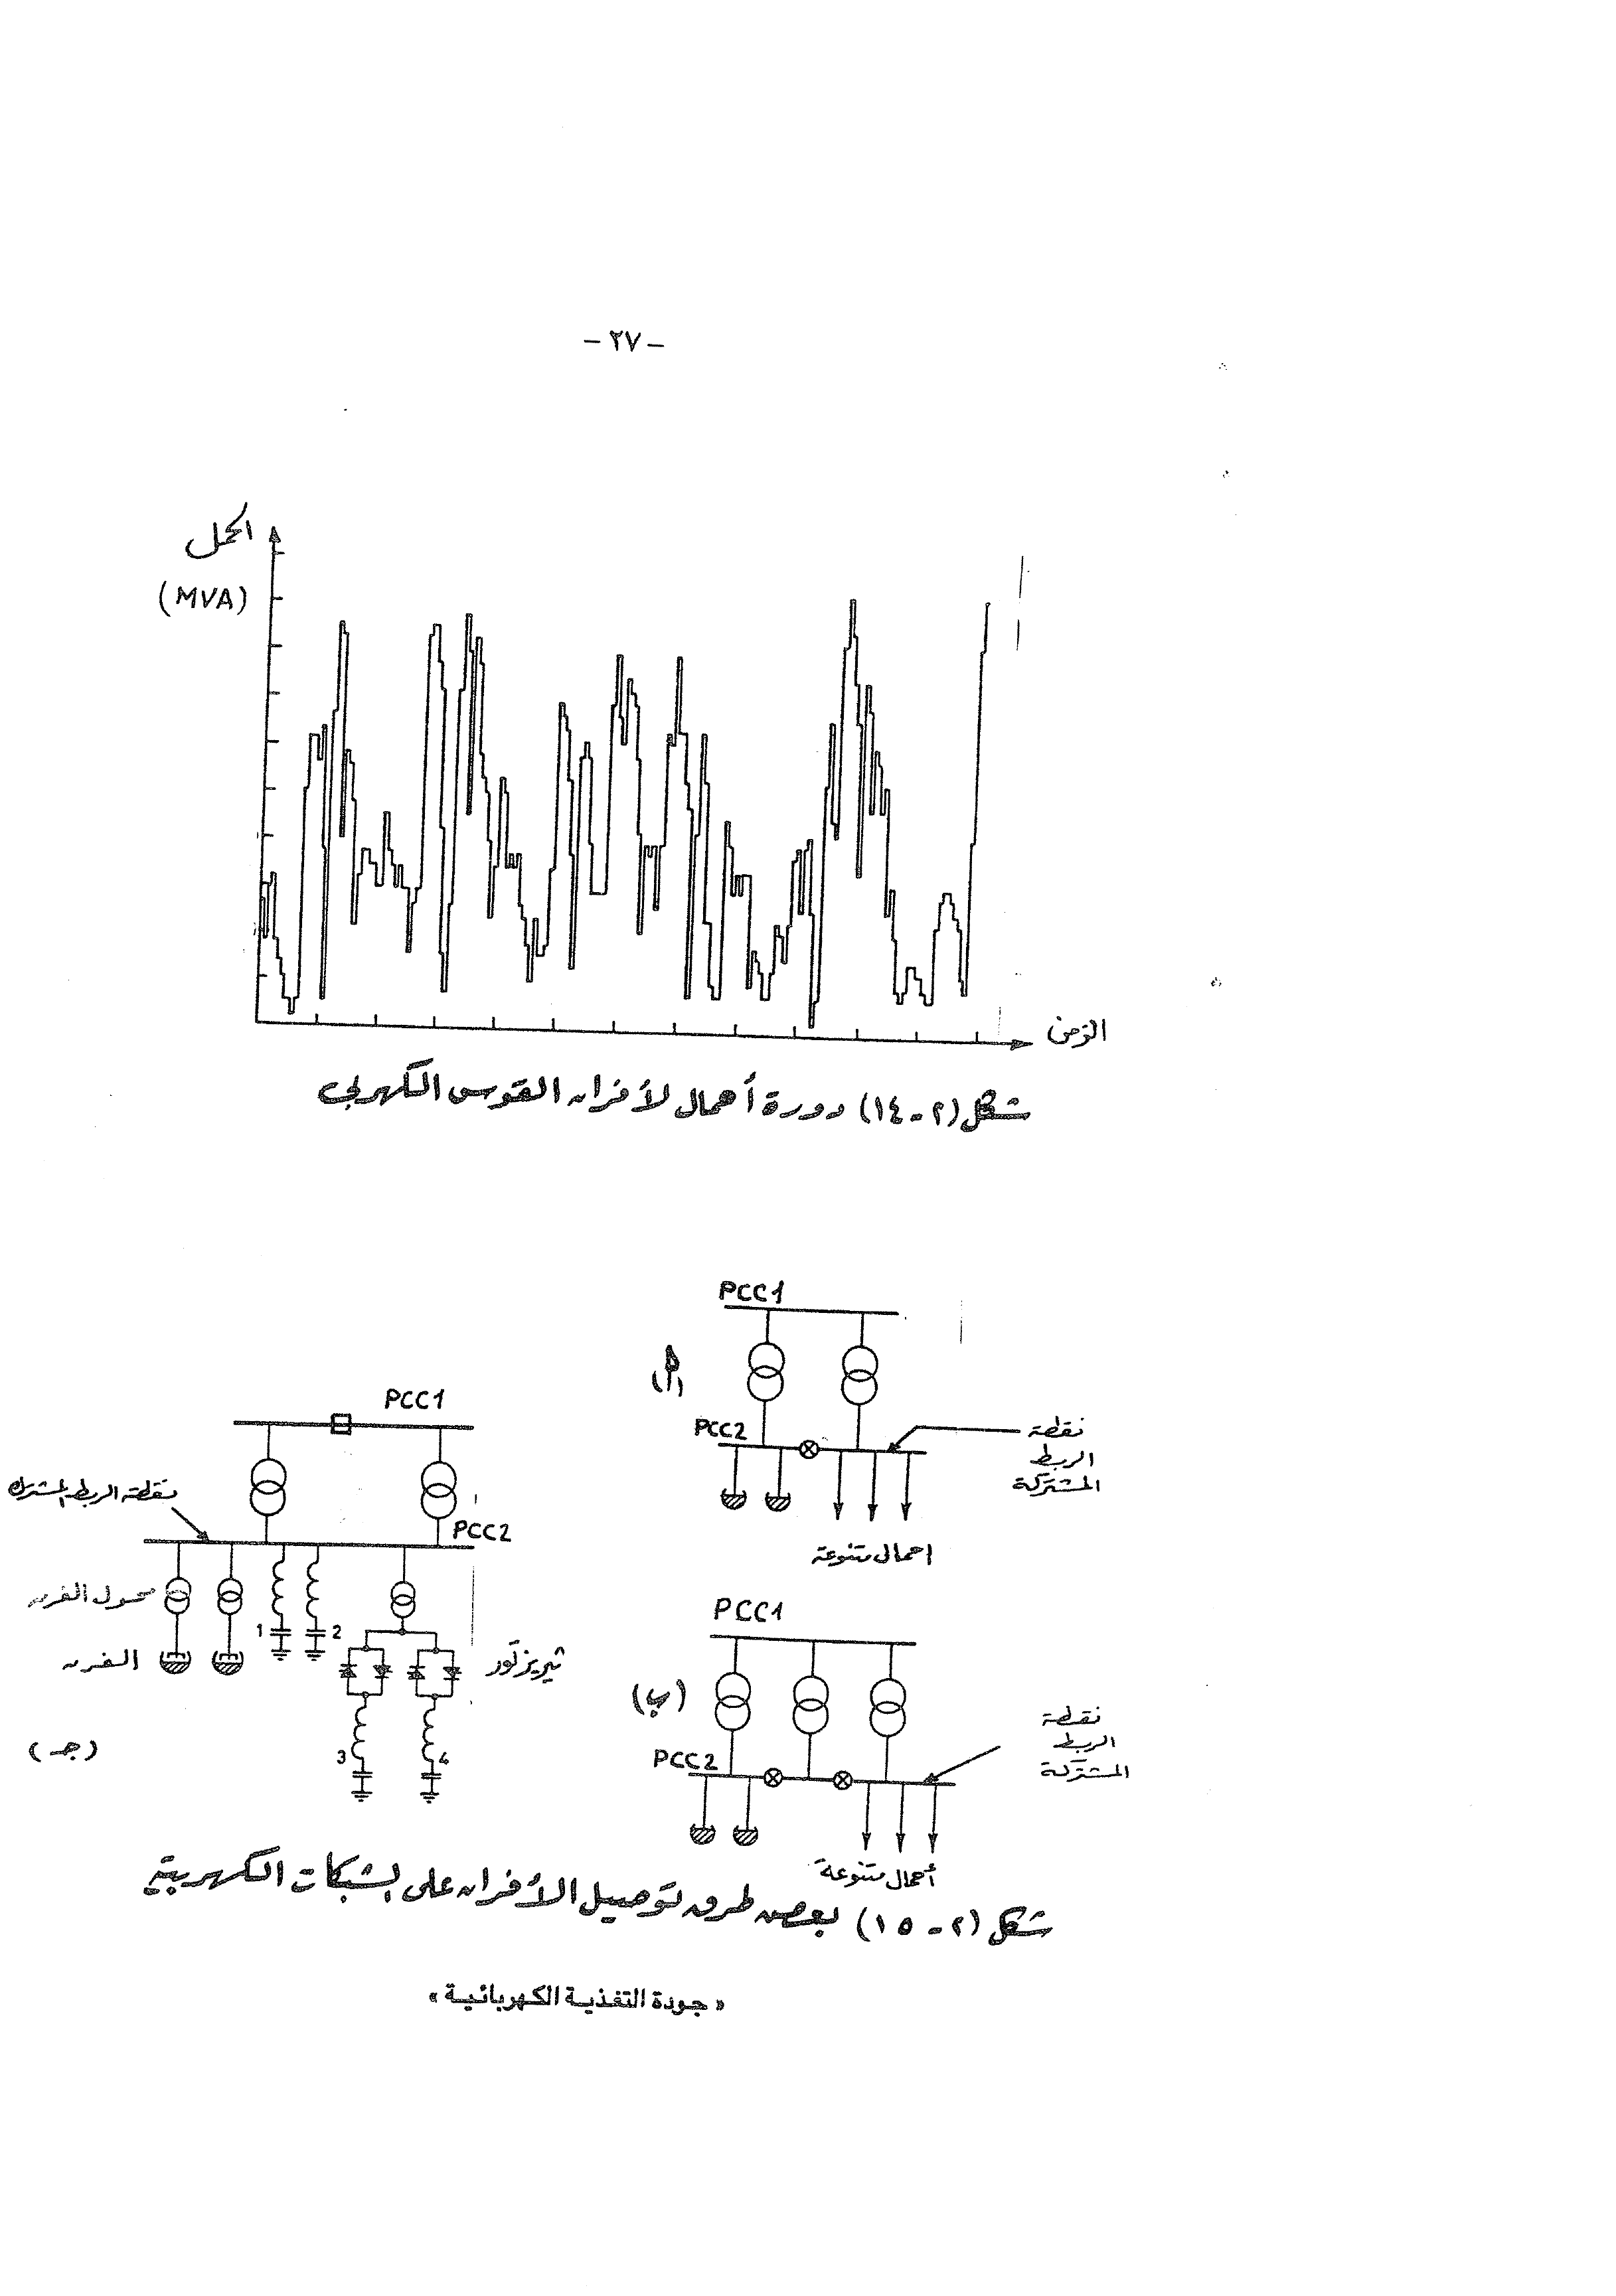 - ٢٧ -
الحمل
(MVA)
الزمن
شكل (٢-١٤) دورة أحمال لأفران القوس الكهربي
PCC1
(أ)
PCC2
نقطة
الربط
المشتركة
احمال متنوعة
PCC1
(ب)
PCC2
نقطة
الربط
المشتركة
أحمال متنوعة
PCC1
نقطة الربط المشترك
PCC2
محول الفرن
1
2
الفرن
ثيريزتور
3
4
(جـ)
شكل (٢-١٥) بعض طرق توصيل الأفران على الشبكات الكهربية
« جودة التغذية الكهربائية »